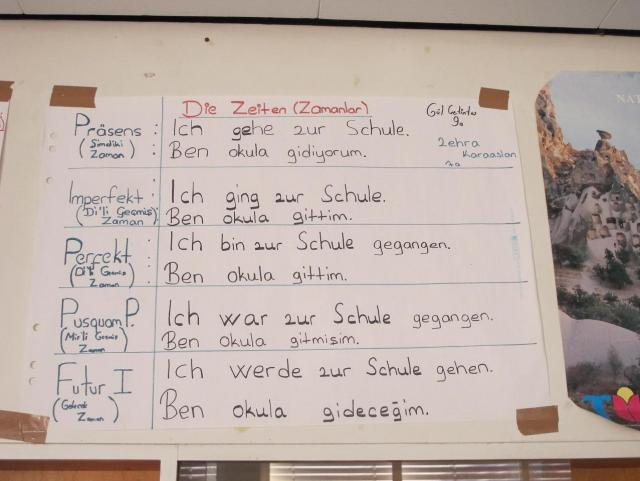 Die Zeiten (Zamanlar)
9a
Zehra
Karaaslan
7a
Präsens : Ich gehe zur Schule.
(Simdiki Zaman) : Ben okula gidiyorum.
Imperfekt : Ich ging zur Schule.
(Di'li Gecmis Zaman) Ben okula gittim.
Perfekt : Ich bin zur Schule gegangen.
(Di'li Gecmis Zaman) Ben okula gittim.
Pusquam P. Ich war zur Schule gegangen.
(Mis'li Gecmis Zaman) Ben okula gitmisim.
Futur I Ich werde zur Schule gehen.
(Gelecek Zaman) Ben okula gideceğim.
NAT